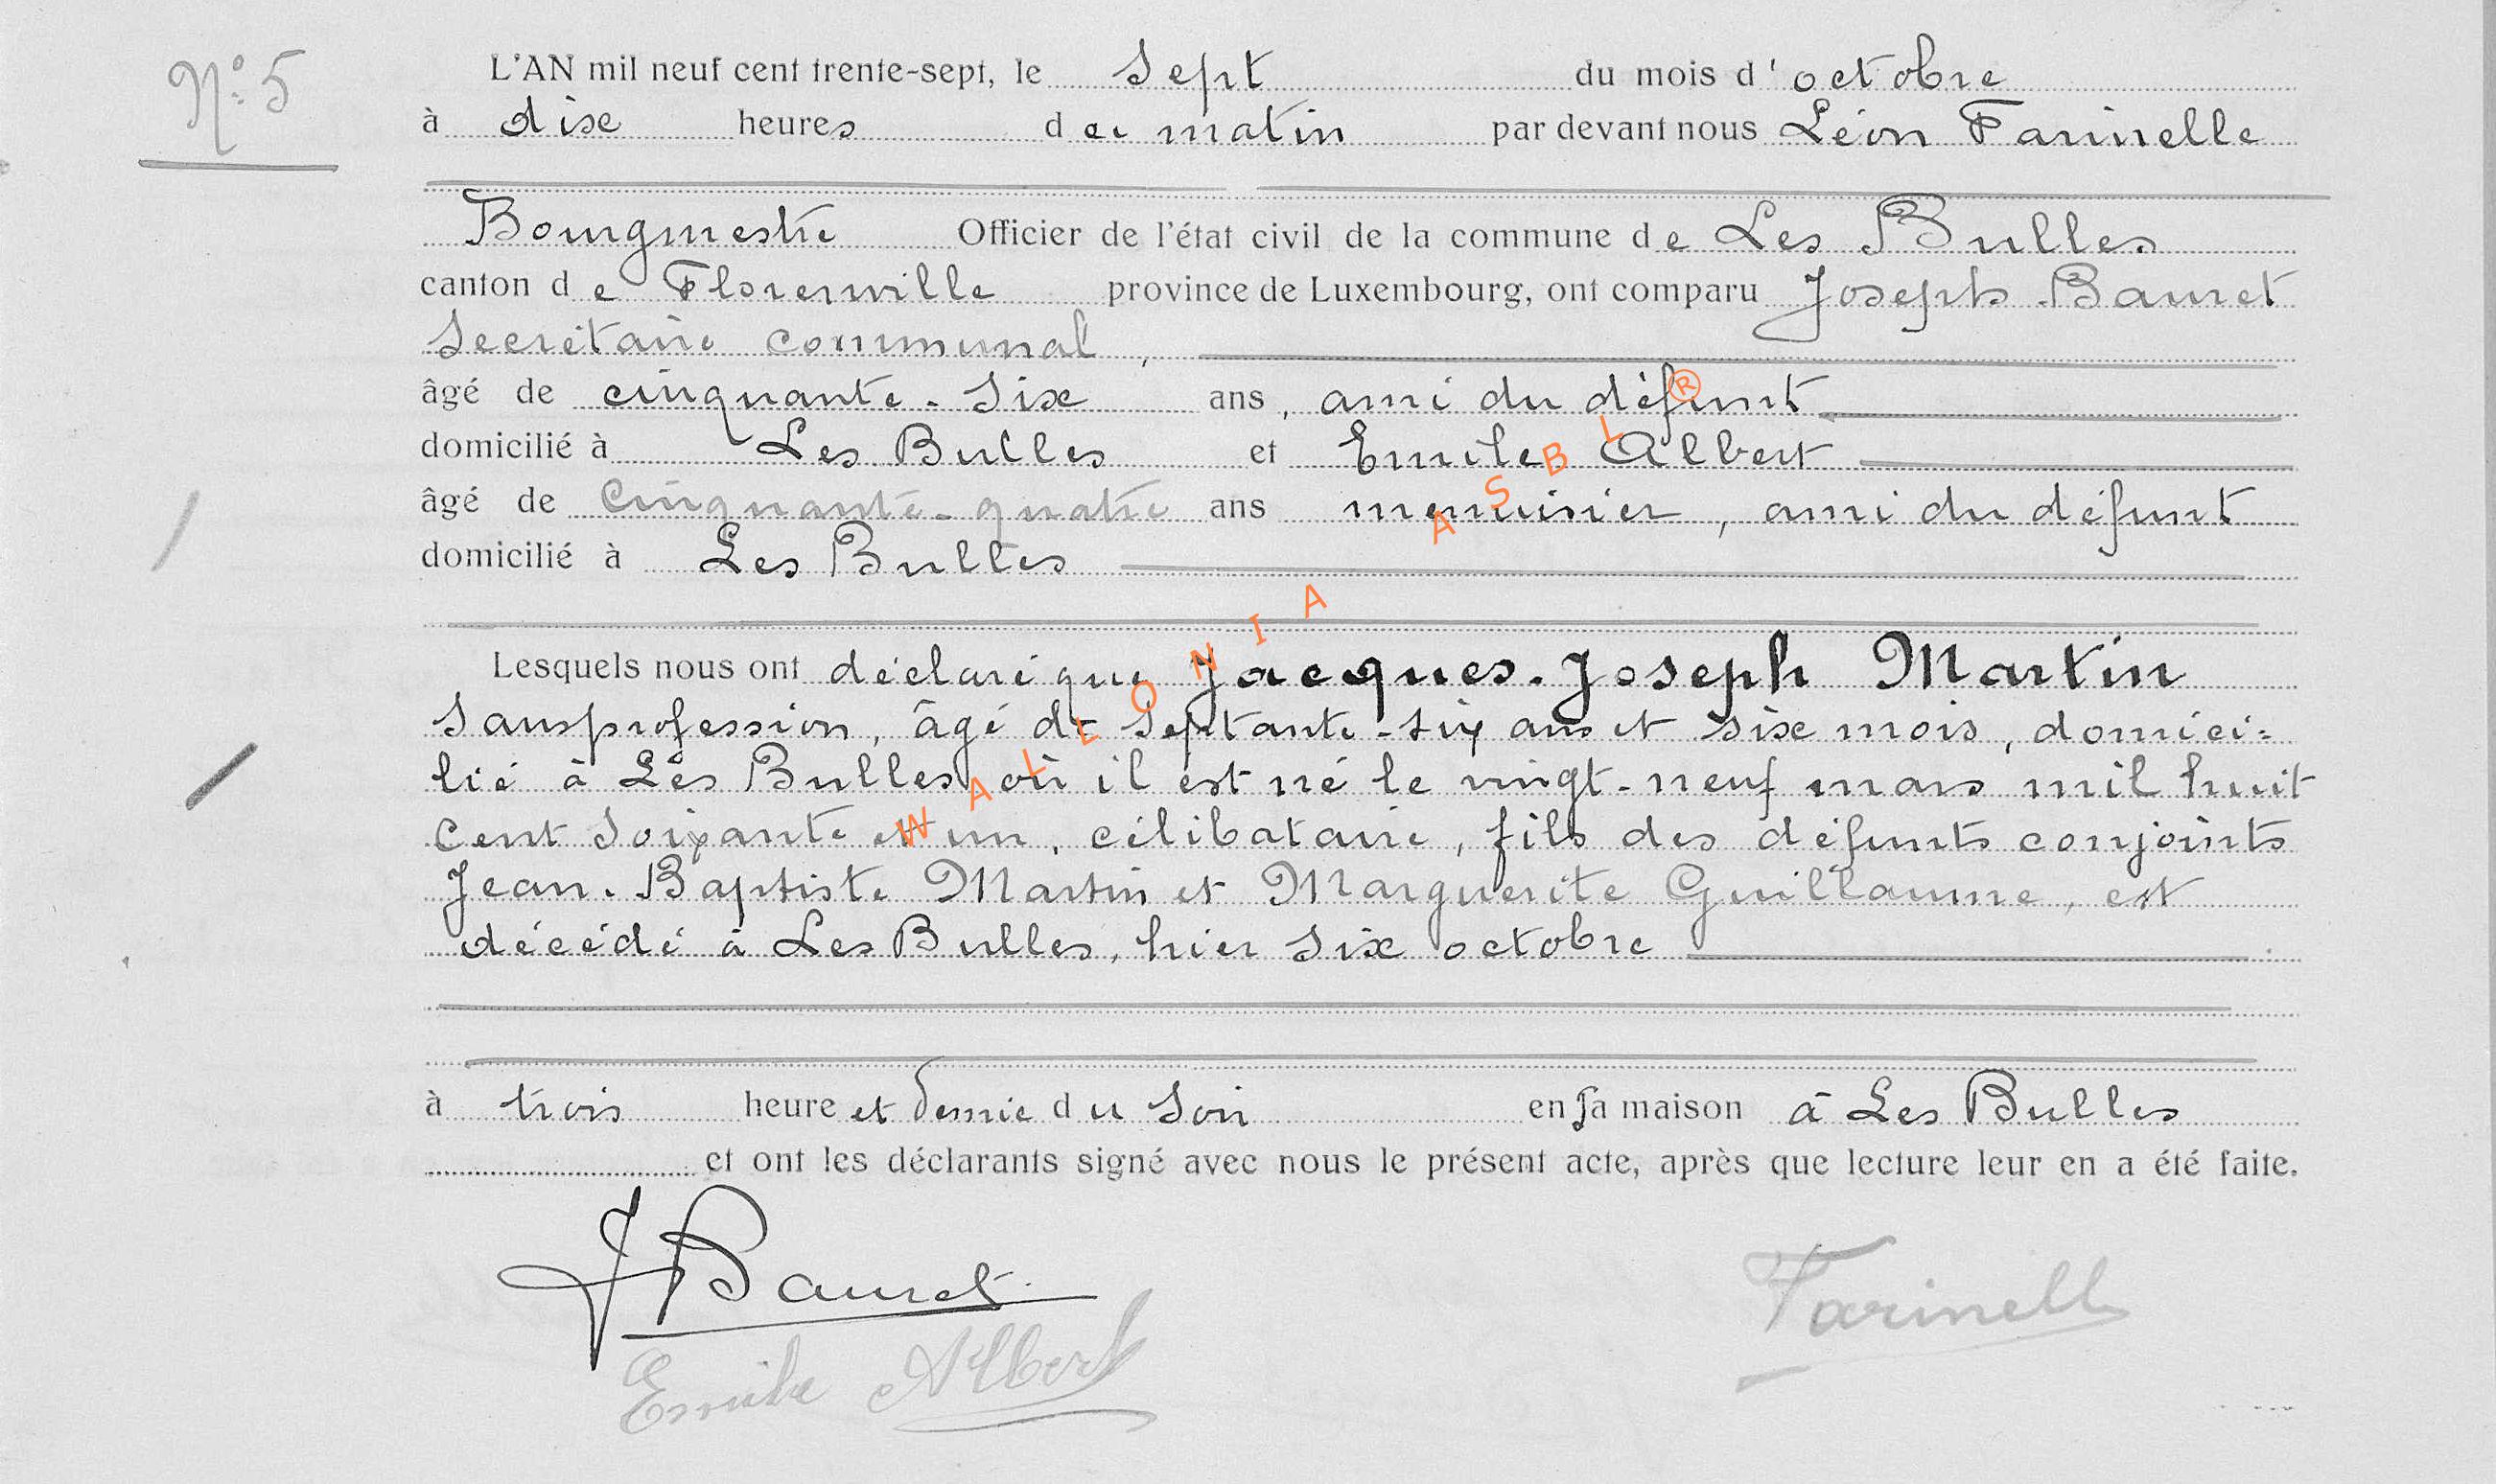 N° 5
L'AN mil neuf cent trente-sept, le sept du mois d'octobre
à dix heures du matin par devant nous Léon Farinelle
Bourgmestre Officier de l'état civil de la commune de Les Bulles
canton de Florenville province de Luxembourg, ont comparu Joseph Bauret
secrétaire communal,
âgé de cinquante-six ans, ami du défunt
domicilié à Les Bulles et Emile Albert
âgé de cinquante-quatre ans menuisier, ami du défunt
domicilié à Les Bulles
Lesquels nous ont déclaré que Jacques-Joseph Martin
sans profession, âgé de septante-six ans et six mois, domici=
lié à Les Bulles où il est né le vingt-neuf mars mil huit
cent soixante et un, célibataire, fils des défunts conjoints
Jean-Baptiste Martin et Marguerite Guillaume, est
décédé à Les Bulles, hier six octobre
à trois heure et demie du soir en sa maison à Les Bulles
et ont les déclarants signé avec nous le présent acte, après que lecture leur en a été faite.
J Bauret
Farinelle
Emile Albert
WALLONIA ASBL ®